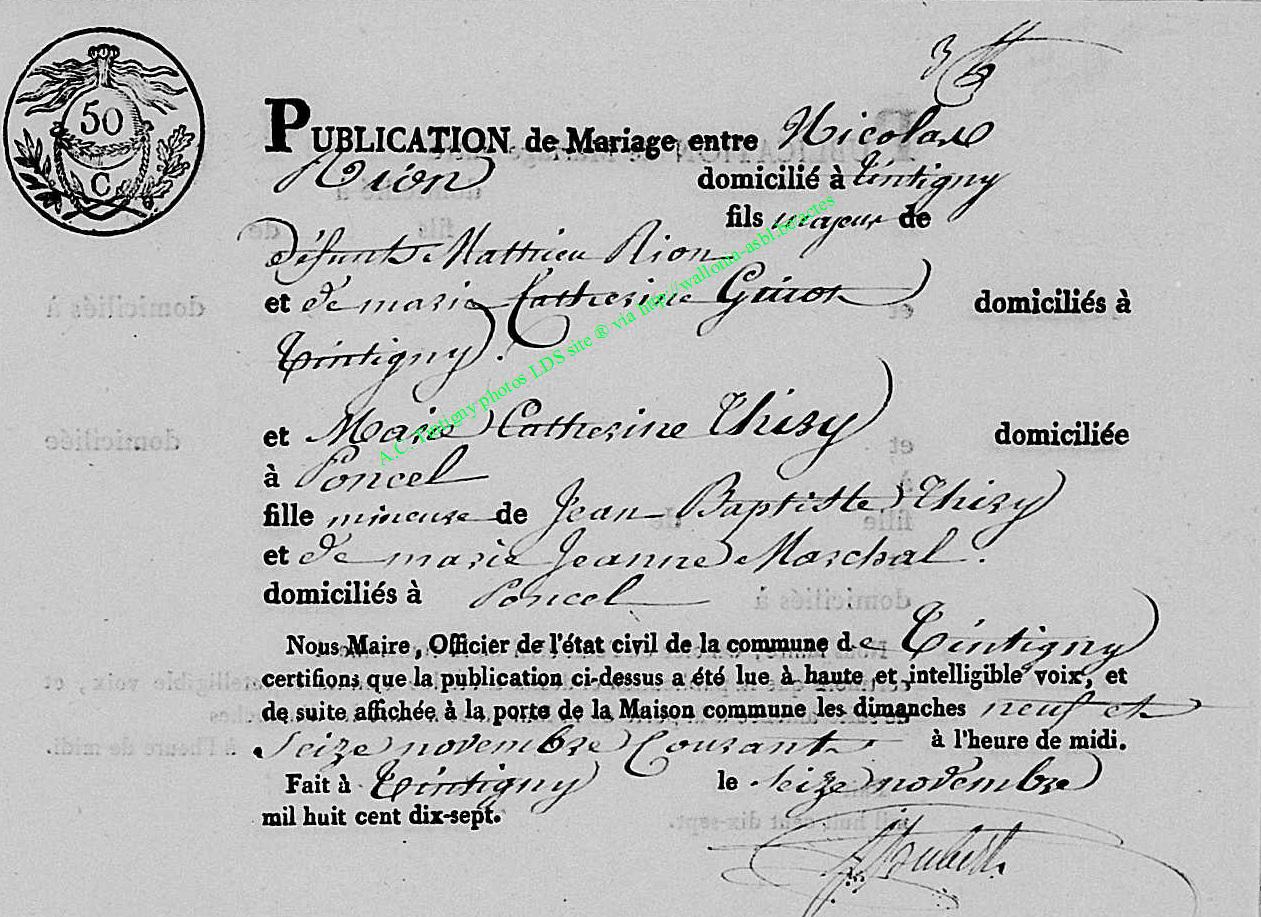 50
C
PUBLICATION de Mariage entre Nicolas
Rion domicilié à tintigny
fils majeur de
défunts Mathieu Rion
et de marie Catherine Guiot domiciliés à
Tintigny.
et Marie Catherine Thiry domiciliée
à Poncel
fille mineure de Jean Baptiste Thiry
et de marie Jeanne Marchal.
domiciliés à Poncel
Nous Maire, Officier de l'état civil de la commune de Tintigny
certifions que la publication ci-dessus a été lue à haute et intelligible voix, et
de suite affichée à la porte de la Maison commune les dimanches neuf et
Seize novembre Courant à l'heure de midi.
Fait à Tintigny le seize novembre
mil huit cent dix-sept.
A.C. Tintigny photos LDS site ® via http://wallonia-asbl.be/actes